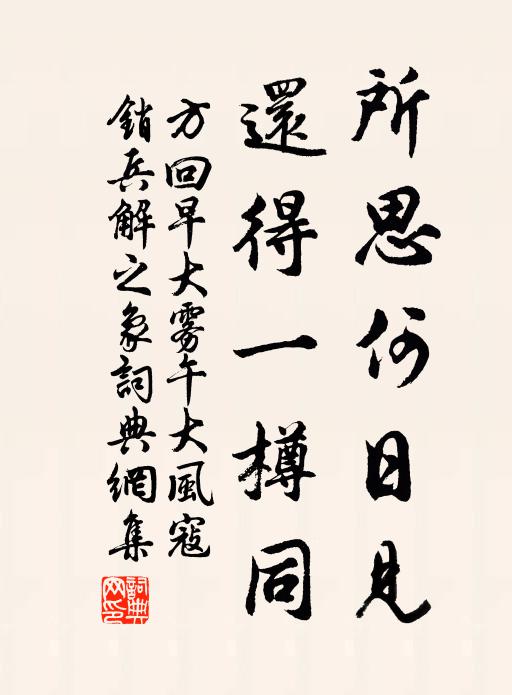 所思何日見
還得一樽同
方回早大雾午大風寇
銷兵解之象詞典網集
詞典
网印